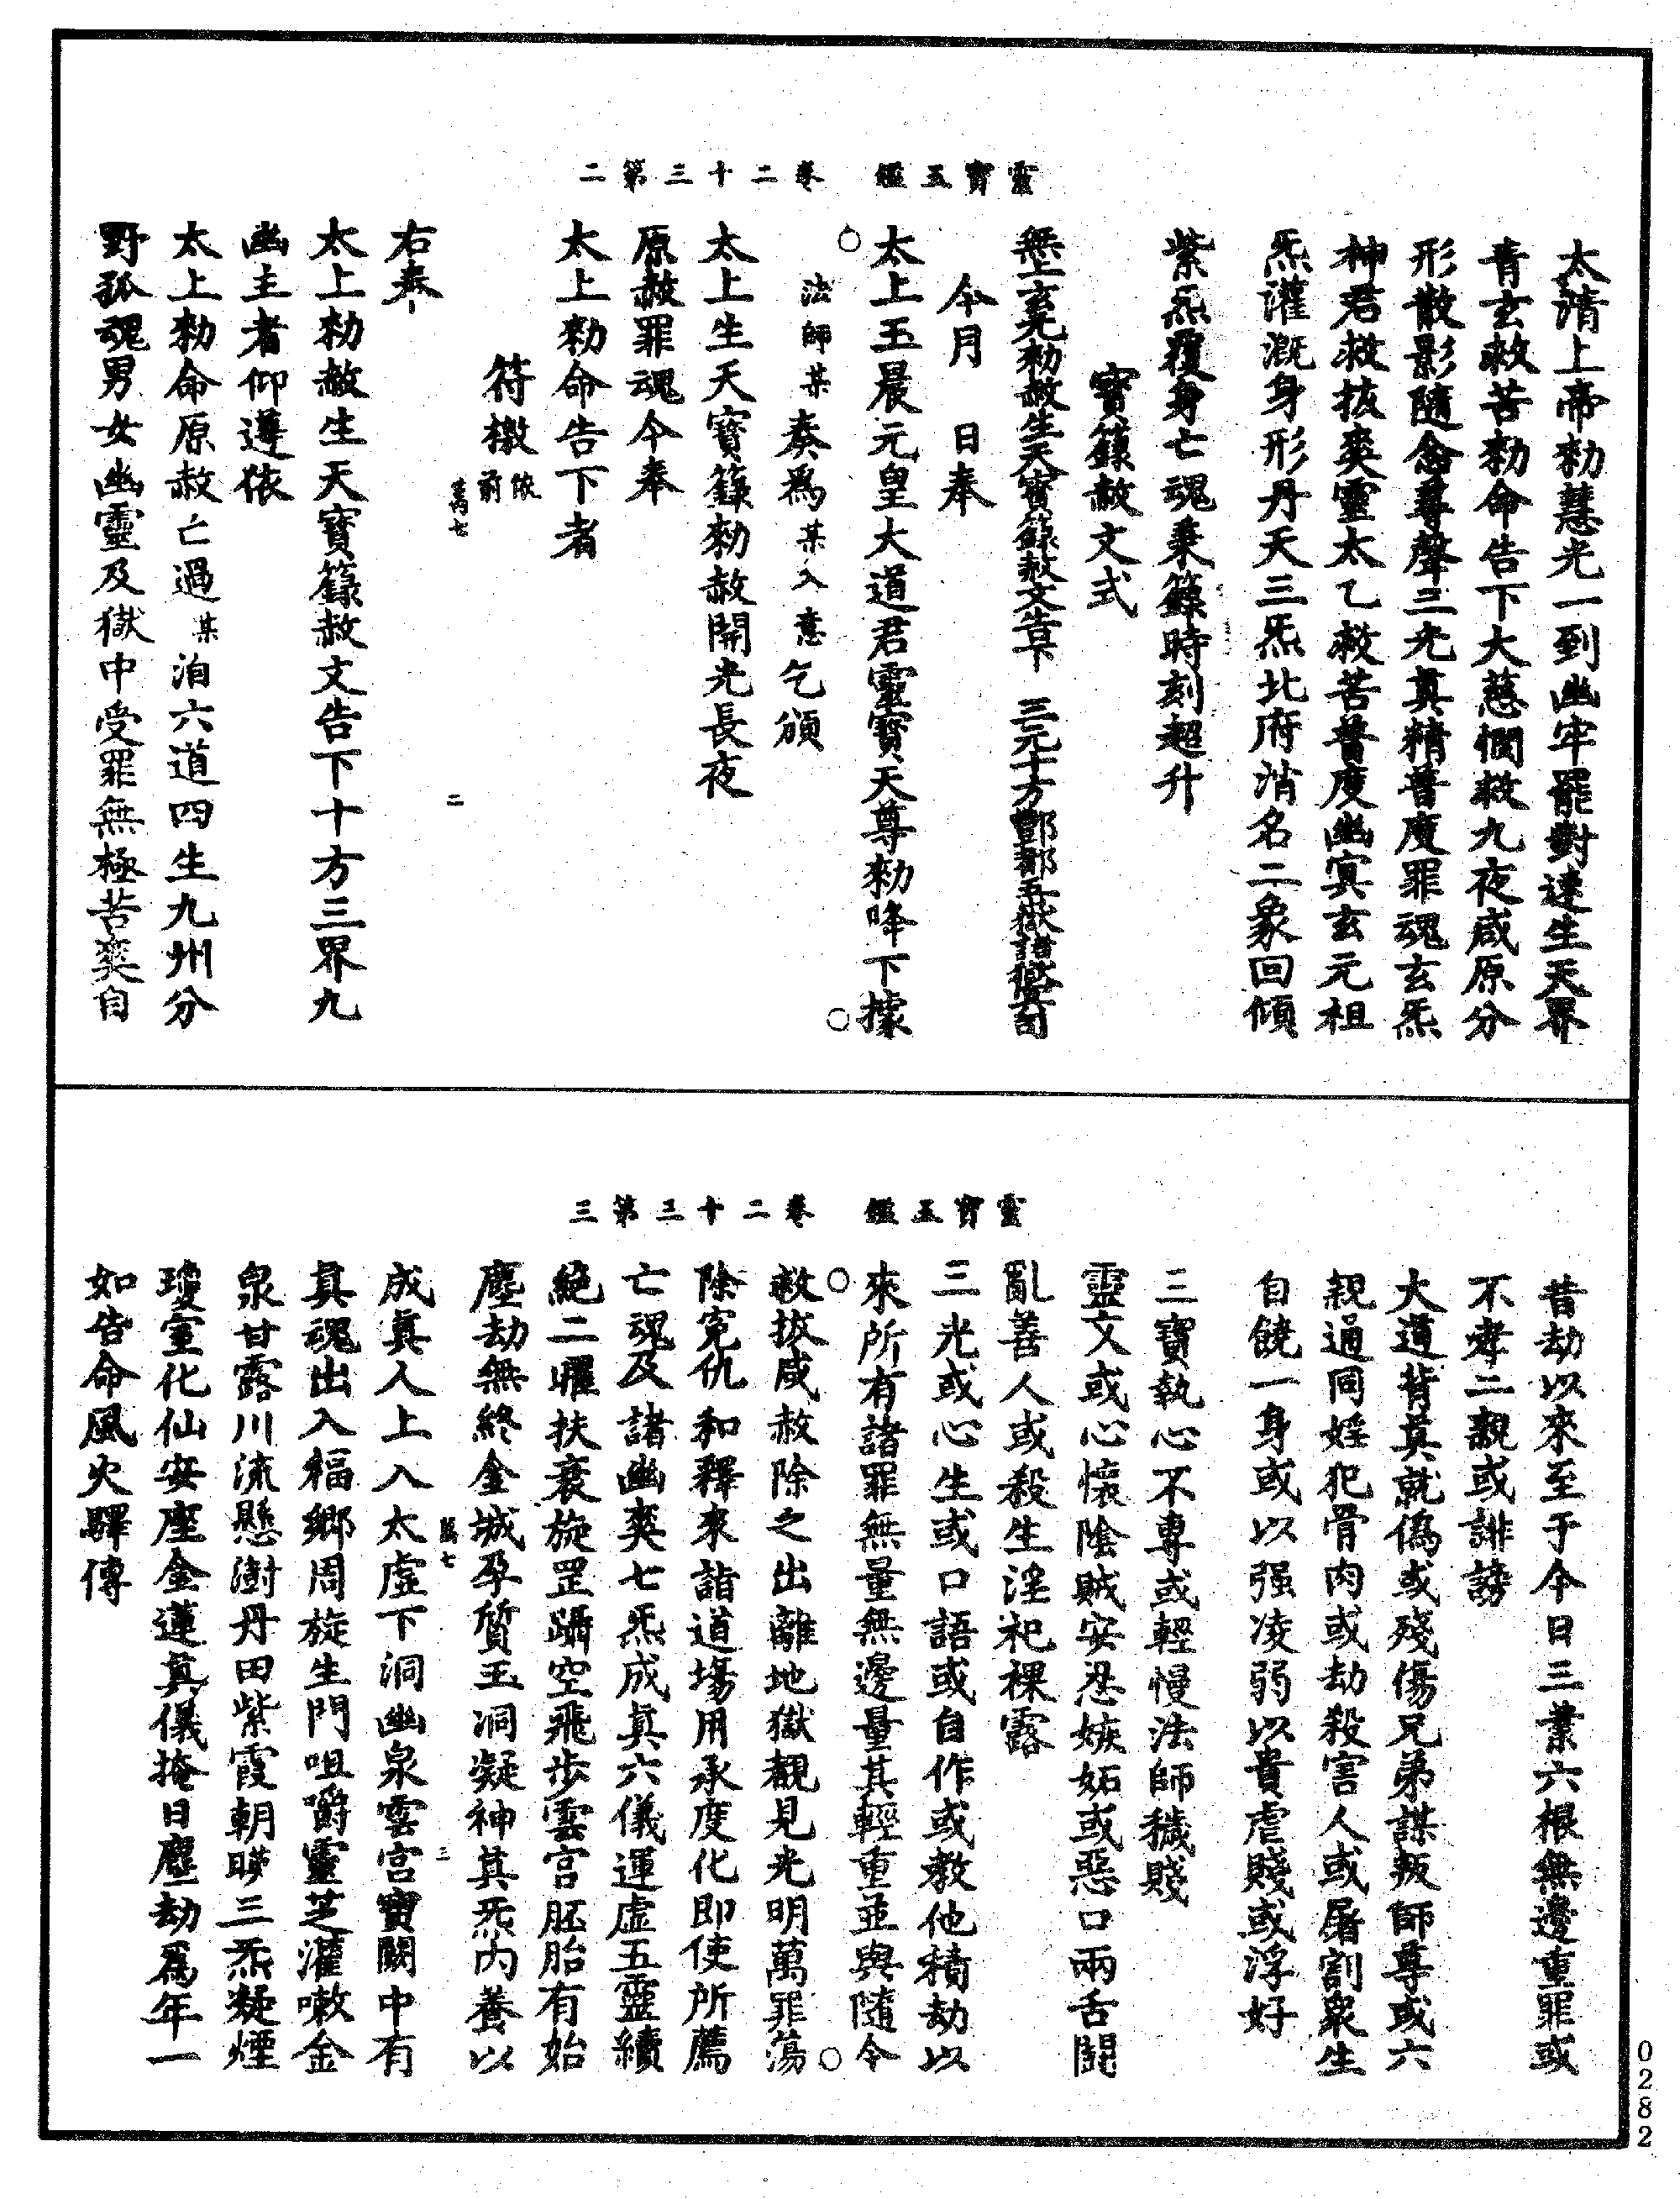 靈寶玉鑑　卷二十三第二
太清上帝勑慧光一到幽牢罷對逮生天界
青玄救苦勑命告下大慈憫救九夜咸原分
形散影隨念尋聲三光真精普度罪魂玄炁
神君救拔爽靈太乙救苦普度幽冥玄元祖
炁灌溉身形丹天三炁北府消名二象回傾
紫炁覆身亡魂秉籙時刻超升
寶籙赦文式
無上玄元勑赦生天寶籙赦文告下　三元十方酆都五獄諸獄
今月　日奉
太上玉晨元皇大道君靈寶天尊勑降下據
法師某奏爲某入意乞頒
太上生天寶籙勑赦開光長夜
原赦罪魂今奉
太上勑命告下者
符檄依前
萬七　二
右奉
太上勑赦生天寶籙赦文告下十方三界九
幽主者仰遵依
太上勑命原赦亡過某洎六道四生九州分
野孤魂男女幽靈及獄中受罪無極苦爽自
靈寶玉鑑　卷二十三第三
昔劫以來至于今日三業六根無邊重罪或
不孝二親或誹謗
大道背真就僞或殘傷兄弟謀叛師尊或六
親通同婬犯骨肉或劫殺害人或屠割衆生
自饒一身或以强凌弱以貴虐賤或浮好
三寶執心不專或輕慢法師穢賤
靈文或心懷陰賊安忍嫉妬或惡口兩舌鬪
亂善人或殺生淫祀裸露
三光或心生或口語或自作或教他積劫以
來所有諸罪無量無邊量其輕重並與隨令
救拔咸赦除之出離地獄覩見光明萬罪蕩
除寃仇和釋來詣道場用承度化即使所薦
亡魂及諸幽爽七炁成真六儀運虛五靈續
絕二曜扶衰旋罡躡空飛步雲宫胚胎有始
塵劫無終金城孕質玉洞凝神其炁内養以
萬七　三
成真人上入太虛下洞幽泉雲宫寶闕中有
真魂出入福鄉周旋生門咀嚼靈芝灌嗽金
泉甘露川流懸澍丹田紫霞朝暎三炁凝煙
瓊室化仙安座金蓮真儀掩日塵劫爲年一
如告命風火驛傳
0282